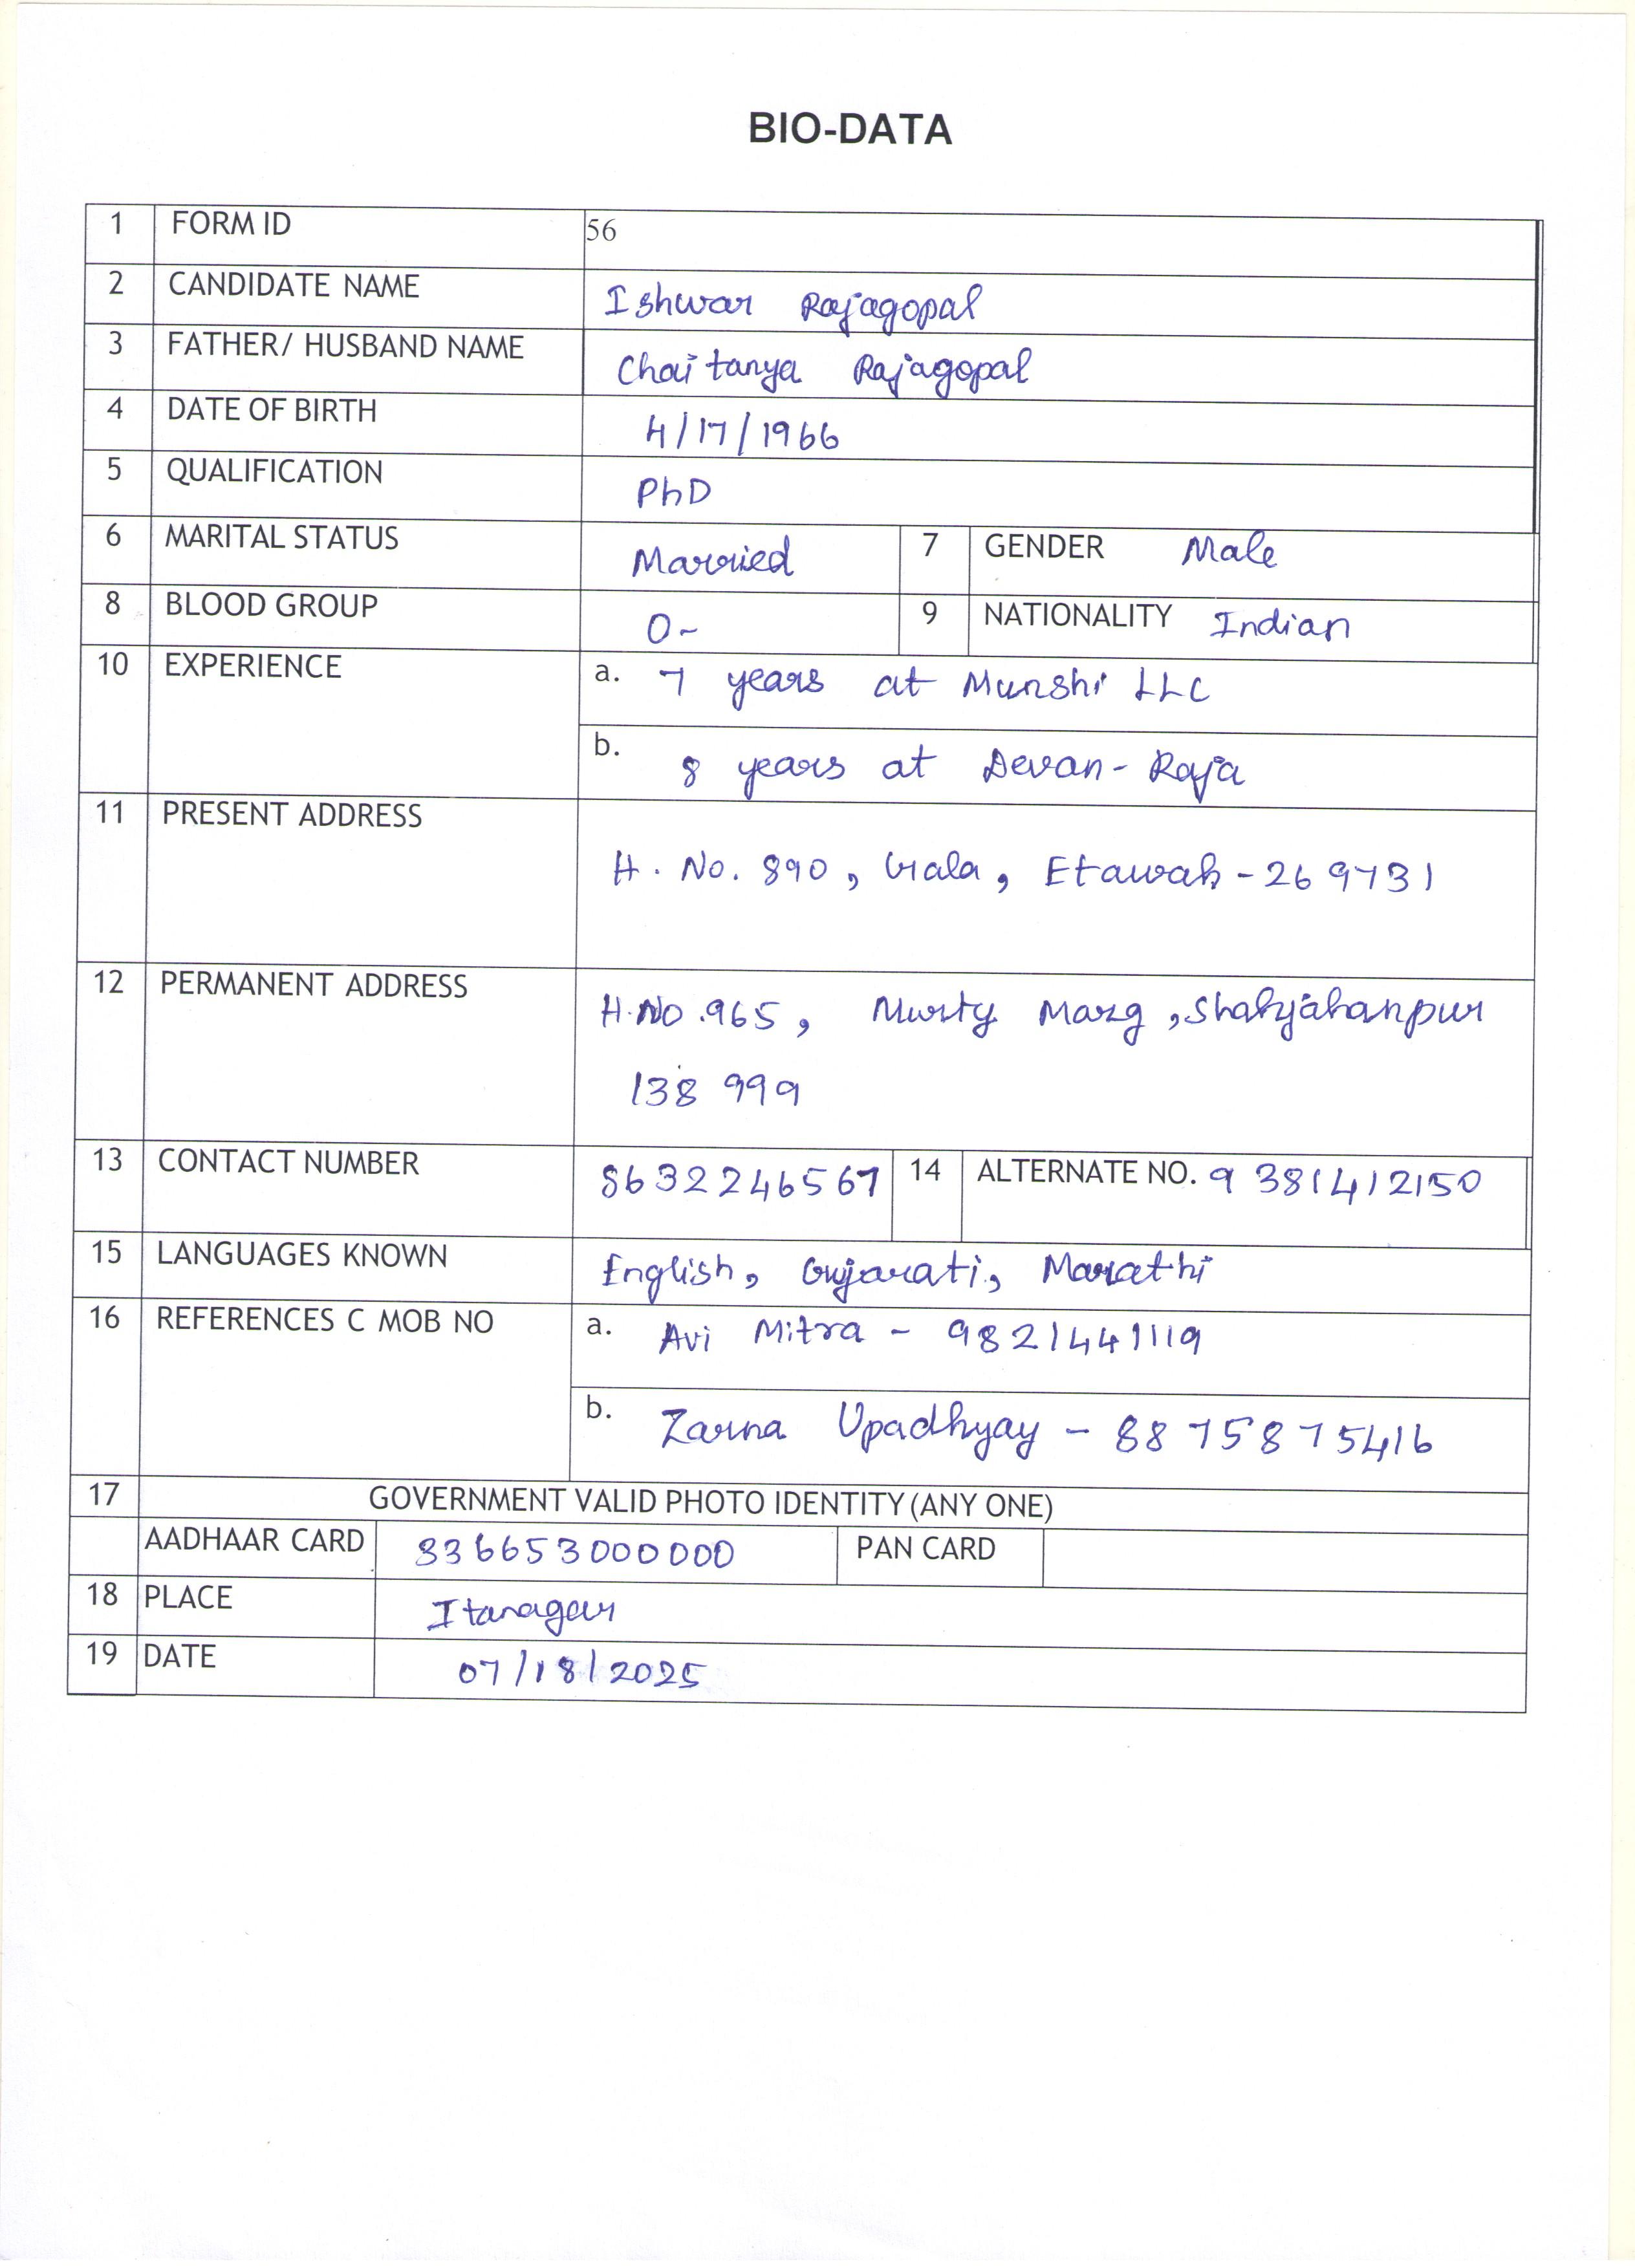 BIO-DATA
1 FORM ID 56
2 CANDIDATE NAME Ishwar Rajagopal
3 FATHER/ HUSBAND NAME Chaitanya Rajagopal
4 DATE OF BIRTH 4/17/1966
5 QUALIFICATION PhD
6 MARITAL STATUS Married 7 GENDER Male
8 BLOOD GROUP O- 9 NATIONALITY Indian
10 EXPERIENCE a. 7 years at Munshi LLC
b. 8 years at Devan-Raja
11 PRESENT ADDRESS
H. No. 890, Gala, Etawah-269731
12 PERMANENT ADDRESS H.No.965, Murty Marg, Shahjahanpur
138 999
13 CONTACT NUMBER 8632246567 14 ALTERNATE NO. 9381412150
15 LANGUAGES KNOWN English, Gujarati, Marathi
16 REFERENCES C MOB NO a. Avi Mitra - 9821441119
b. Zarna Upadhyay - 8875875416
17 GOVERNMENT VALID PHOTO IDENTITY (ANY ONE)
AADHAAR CARD 336653000000 PAN CARD
18 PLACE Itanagar
19 DATE 07/18/2025